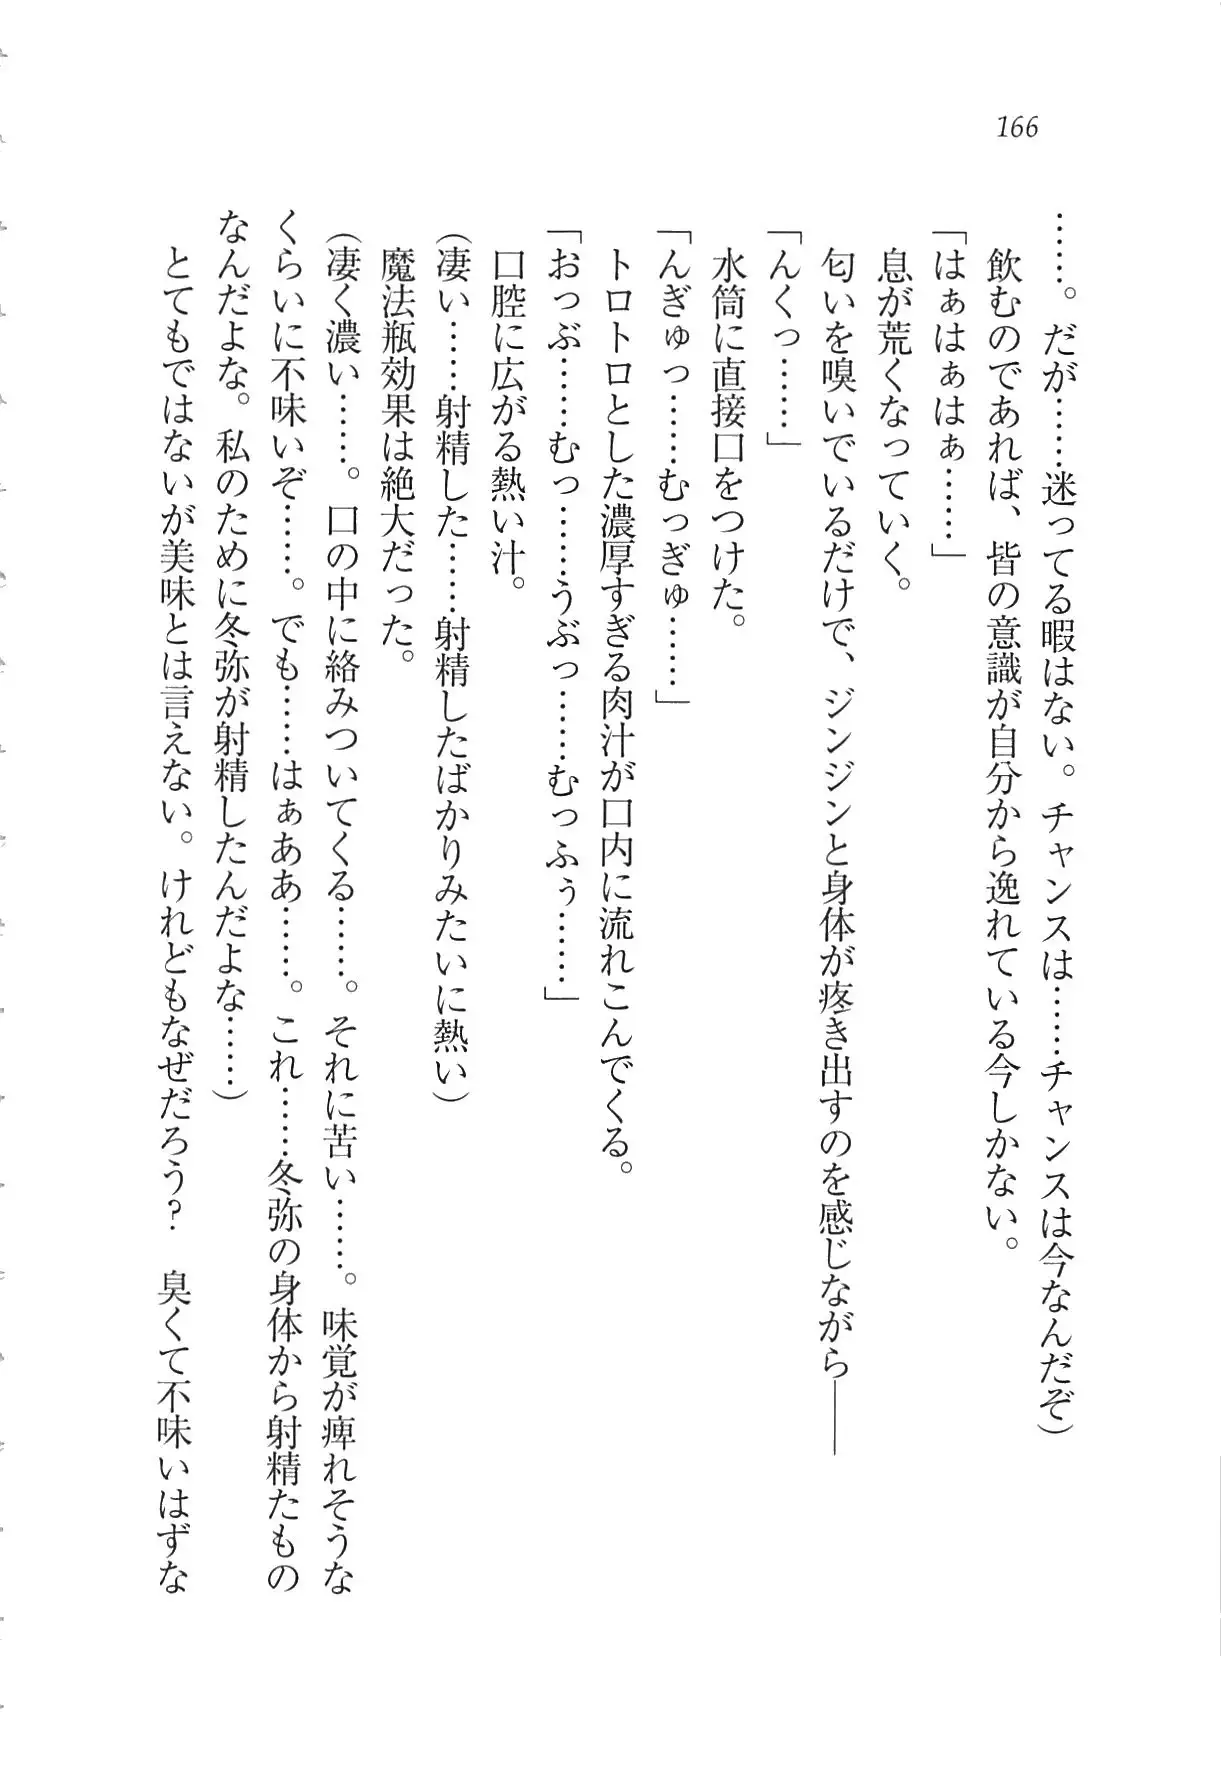 166
……。だが……迷ってる暇はない。チャンスは……チャンスは今なんだぞ）
飲むのであれば、皆の意識が自分から逸れている今しかない。
「はぁはぁはぁ……」
息が荒くなっていく。
匂いを嗅いでいるだけで、ジンジンと身体が疼き出すのを感じながら――
「んくっ……」
水筒に直接口をつけた。
「んぎゅっ……むっぎゅ……」
トロトロとした濃厚すぎる肉汁が口内に流れこんでくる。
「おっぶ……むっ……うぶっ……むっふぅ……」
口腔に広がる熱い汁。
（凄い……射精した……射精したばかりみたいに熱い）
魔法瓶効果は絶大だった。
（凄く濃い……。口の中に絡みついてくる……。それに苦い……。味覚が痺れそうな
くらいに不味いぞ……。でも……はぁああ……。これ……冬弥の身体から射精たもの
なんだよな。私のために冬弥が射精したんだよな……）
とてもではないが美味とは言えない。けれどもなぜだろう？　臭くて不味いはずな